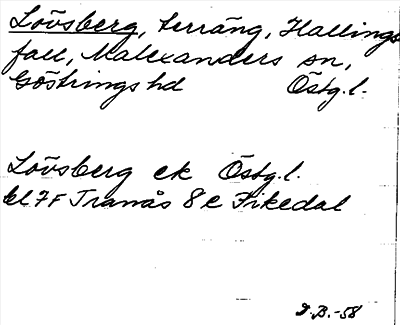 Lövsberg, terräng, Hallings
fall, Malexanders sn,
Göstrings hd Östg.l.
Lövsberg ek Östg.l.
bl 7F Tranås 8 e Fikedal
D.B.-58